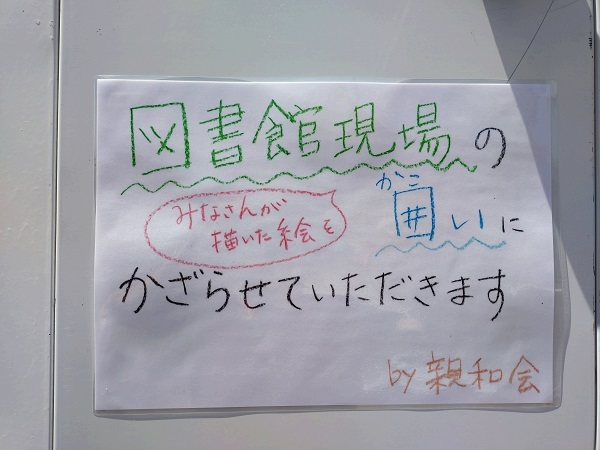 図書館現場の
みなさんが
描いた絵を
かこ
囲いに
かざらせていただきます
by 親和会